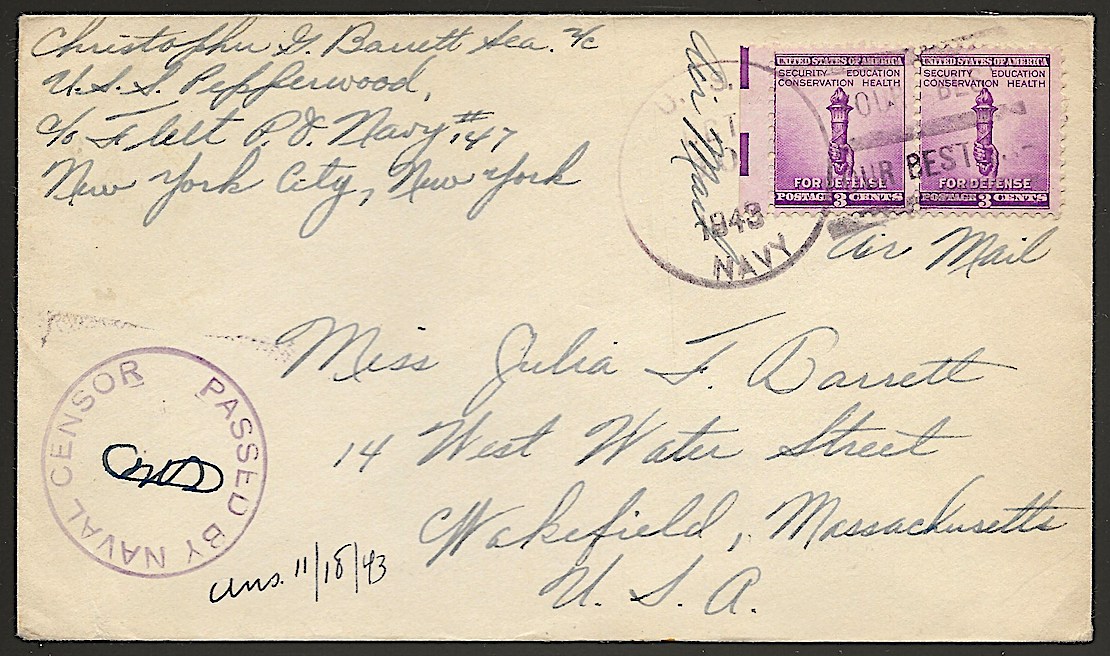 Christopher G. Barrett Sea. 2/c
U.S.S. Pepperwood,
c/o Fleet P.O. Navy #147
New York City, New York
Air Mail
1943
NAVY
UNITED STATES OF AMERICA
SECURITY EDUCATION
CONSERVATION HEALTH
FOR DEFENSE
POSTAGE 3 CENTS
UNITED STATES OF AMERICA
SECURITY EDUCATION
CONSERVATION HEALTH
FOR DEFENSE
POSTAGE 3 CENTS
OUR BEST
Air Mail
Miss Julia F. Barrett
14 West Water Street
Wakefield, Massachusetts
U. S. A.
PASSED BY NAVAL CENSOR
ans. 11/18/43